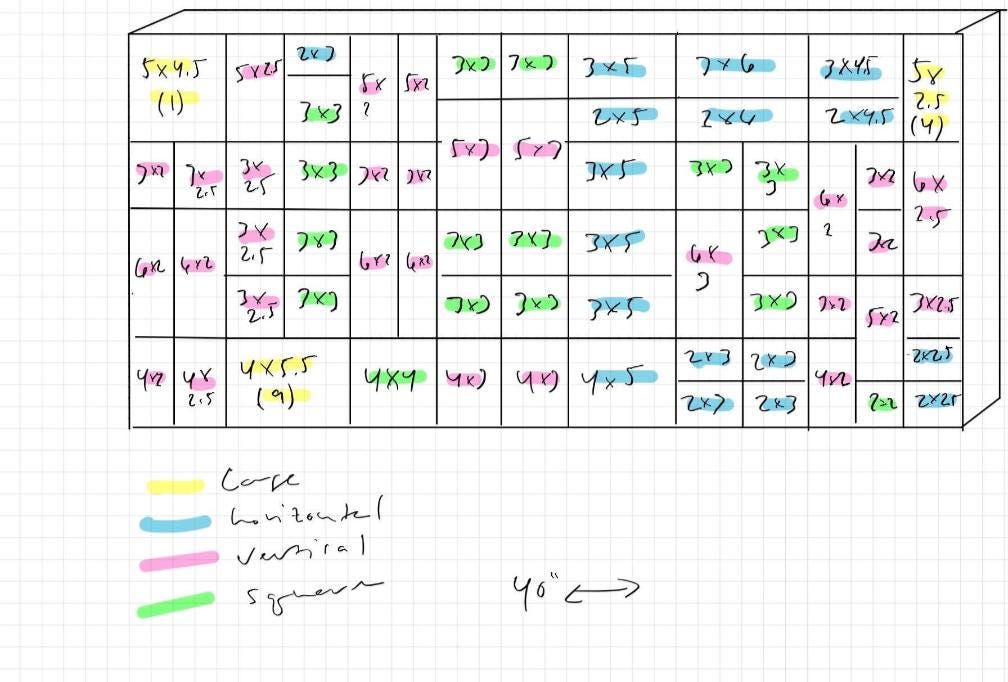 5x4.5
(1)
5x2.5
2x3
3x3
5x
2
5x2
3x3
3x3
3x5
2x5
3x6
2x6
3x4.5
2x4.5
5x
2.5
(4)
5x3
5x3
3x2
3x
2.5
3x
2.5
3x3
3x2
3x2
3x5
3x3
3x
3
6x
2
3x2
3x2
6x
2.5
6x2
6x2
3x
2.5
3x3
6x2
6x2
3x3
3x3
3x5
6x
3
3x3
3x
2.5
3x3
3x3
3x3
3x5
3x3
3x2
5x2
3x2.5
2x2.5
4x2
4x
2.5
4x5.5
(9)
4x4
4x3
4x3
4x5
2x3
2x3
2x3
2x3
4x2
2x2
2x2.5
Large
horizontal
vertical
square
40"